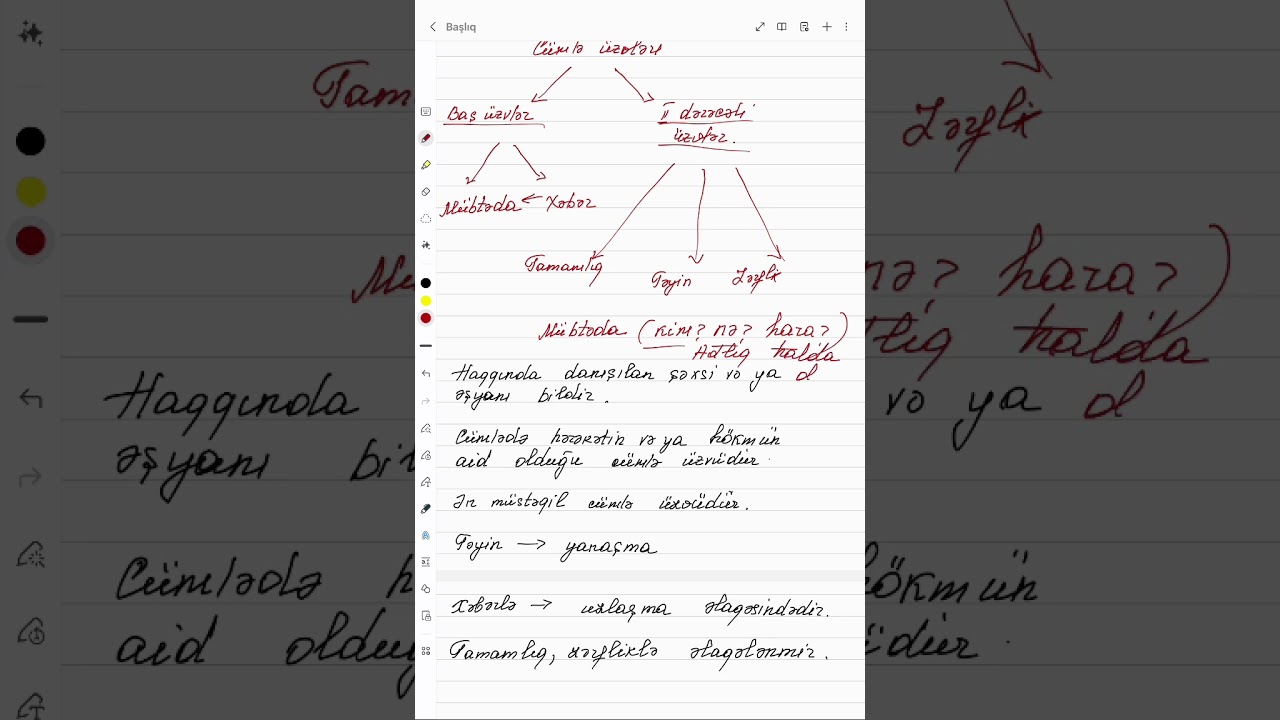 Başlıq
Cümlə üzvləri
Baş üzvlər
II dərəcəli
üzvlər.
Mübtəda ← Xəbər
Tamamlıq
Təyin
Zərflik
Mübtəda (Kim? nə? hara?)
Adlıq halda
Haqqında danışılan şəxsi və ya d
əşyanı bildir.
Cümlədə hərəkətin və ya hökmün
aid olduğu cümlə üzvüdür.
Ən müstəqil cümlə üzvüdür.
Təyin → yanaşma
Xəbərlə → uzlaşma əlaqəsindədir.
Tamamlıq, zərfliklə əlaqələnmir.